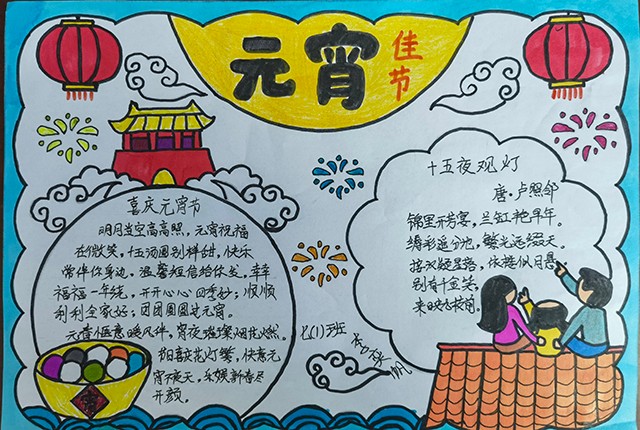 元宵
佳节
喜庆元宵节
明月当空高高照,元宵祝福
在微笑,十五汤圆别样甜,快乐
常伴你身边,温馨短信给你发,幸幸
福福一年绕,开开心心四季妙;顺顺
利利全家好;团团圆圆过元宵。
元宵惬意暖风伴,宵夜璀璨烟花燃。
阳喜花灯繁,快意元
宵不夜天,乐娱新春尽
开颜。
十五夜观灯
唐·卢照邻
锦里开芳宴,兰缸艳早年。
缛彩遥分地,繁光远缀天。
接汉疑星落,依楼似月悬。
别有千金笑,
来映九枝前。
七(1)班